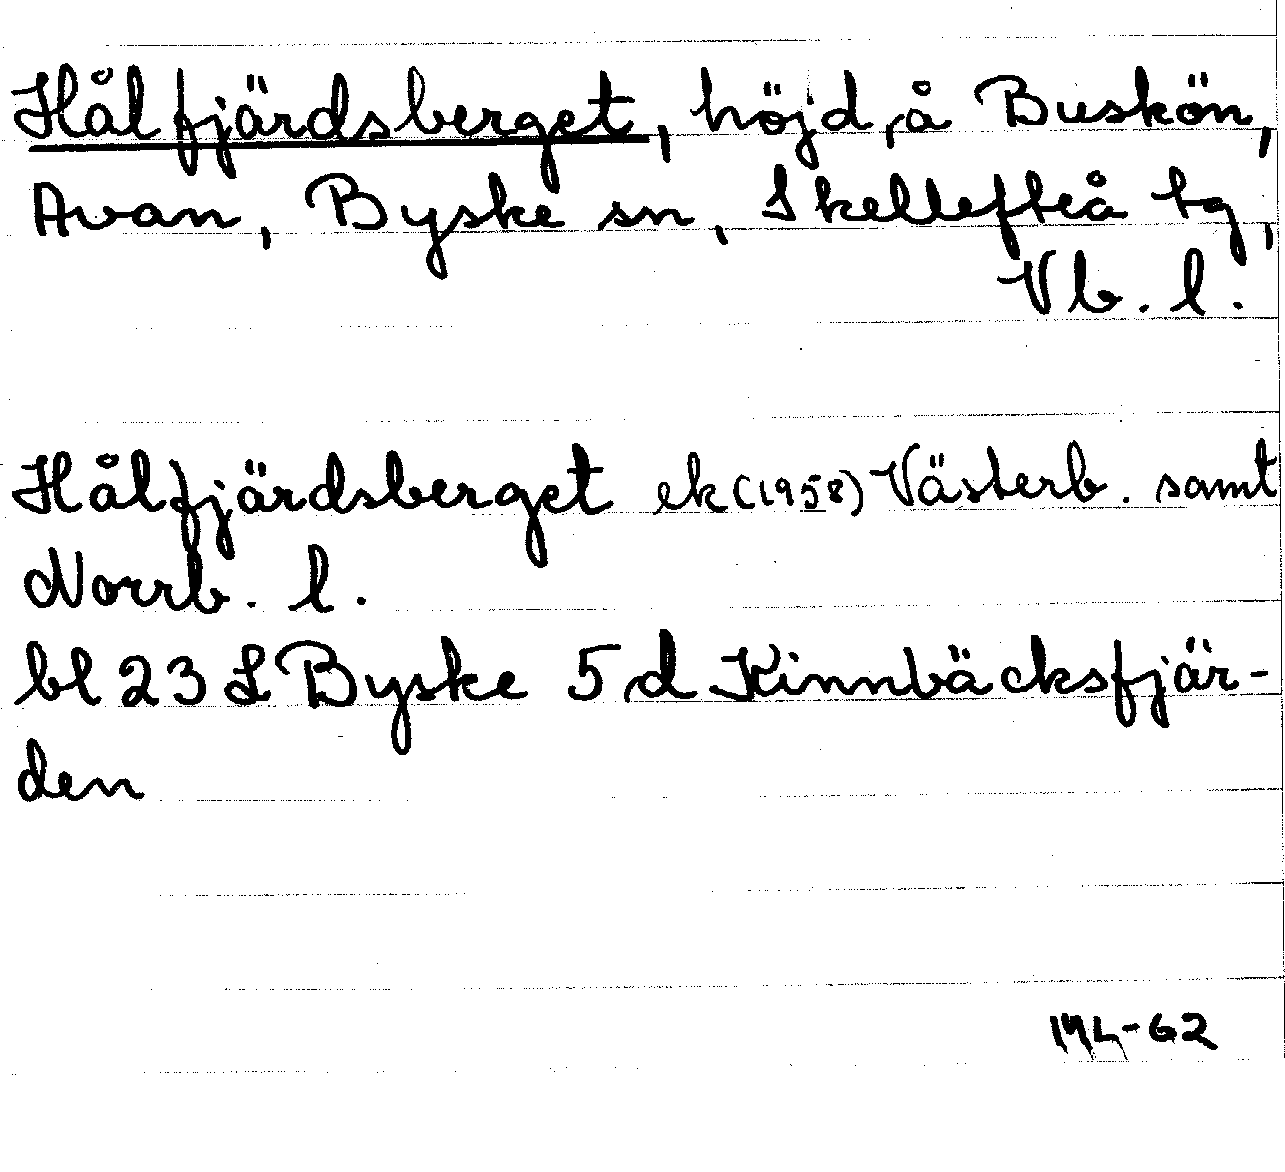 Hålfjärdsberget, höjd, å Buskön,
Avan, Byske sn, Skellefteå tg,
Vb. l.
Hålfjärdsberget ek (1958) Västerb. samt
Norrb. l.
bl 23 L Byske 5 d Kinnbäcksfjär-
den
ML-62